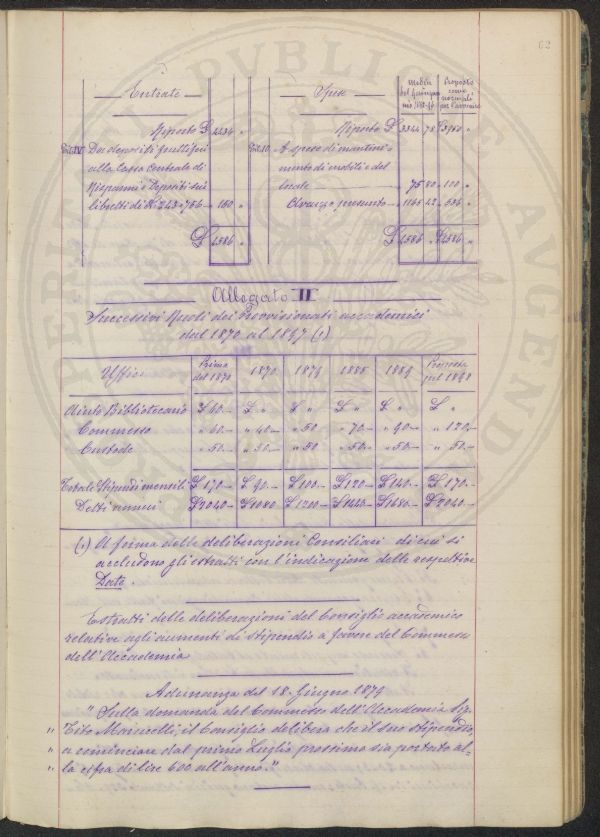 62
Entrate
Spese
Media del quinquennio 1892-96
Proposte come normali per l'avvenire
Riporto £ 2236 "
Riporto £ 3344 78 £ 3950 "
Tit. IV Dai depositi fruttiferi
alla Cassa Centrale di
Risparmi e Depositi sui
libretti di N.
A spese di mantenimento di mobili e del
locale 75 80 100 "
Avanzo presunto 1165 42 536 "
£ 4586 "
£ 4586 " £ 4586 "
Allegato II
Successivi Ruoli dei Provvisionati accademici
dal 1870 al 1897 (1)
Uffici Prima del 1870 1870 1879 1885 1889 Proposta pel 1898
Aiuto Bibliotecario £ 60.— £ " £ " £ " £ " £ "
Commesso " 60.— " 40.— " 50 " 70.— " 90.— " 120.—
Custode " 50.— " 50.— " 50 " 50.— " 50.— " 50.—
Totale Stipendi mensili £ 170.— £ 90.— £ 100.— £ 120.— £ 140.— £ 170.—
Detti annui £ 2040.— £ 1080 £ 1200.— £ 1440.— £ 1680.— £ 2040.—
(1) A forma delle deliberazioni Consiliari di cui si
accludono gli estratti con l'indicazione delle respettive
Date.
Estratti delle deliberazioni del Consiglio accademico
relative agli aumenti di stipendio a favore del Commesso
dell'Accademia
Adunanza del 18. Giugno 1879
" Sulla domanda del Commesso dell'Accademia Sig.
" Tito Marucelli, il Consiglio delibera che il suo stipendio,
" a cominciare dal primo Luglio prossimo sia portato al-
" la cifra di lire 600 all'anno."